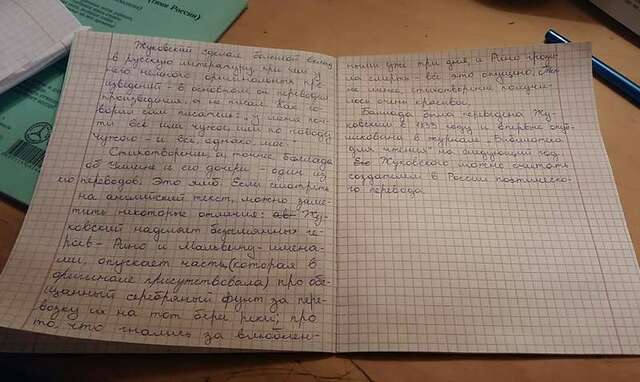 (гимн России)
Жуковский сделал большой вклад
в русскую литературу, при чем у
него немного оригинальных про-
изведений - в основном он переводил
произведения, а не писал. Как го-
ворил сам писатель: "У меня поч-
ти всё или чужое, или по поводу
чужого - и всё, однако, мое."
Стихотворение, а точнее, Баллада
об Уллине и его дочери - один из
его переводов. Это ямб. Если смотреть
на английский текст, можно заме-
тить некоторые отличия: Жу-
ковский наделяет безымянных ге-
роев - Рино и Мальвину - имена-
ми, опускает часть (которая в
оригинале присутствовала) про обе-
щанный серебряный фунт за пере-
возку их на тот берег реки; про
то, что гнались за влюблён-
ными уже три дня, и Рино грози-
ла смерть - всё это опущено, тем
не менее, стихотворение получи-
лось очень красивое.
Баллада была переведена Жу-
ковским в 1833 году и впервые опуб-
ликована в журнале "Библиотека
для чтения" на следующий год.
Жуковского можно считать
создателем в России поэтическо-
го перевода.